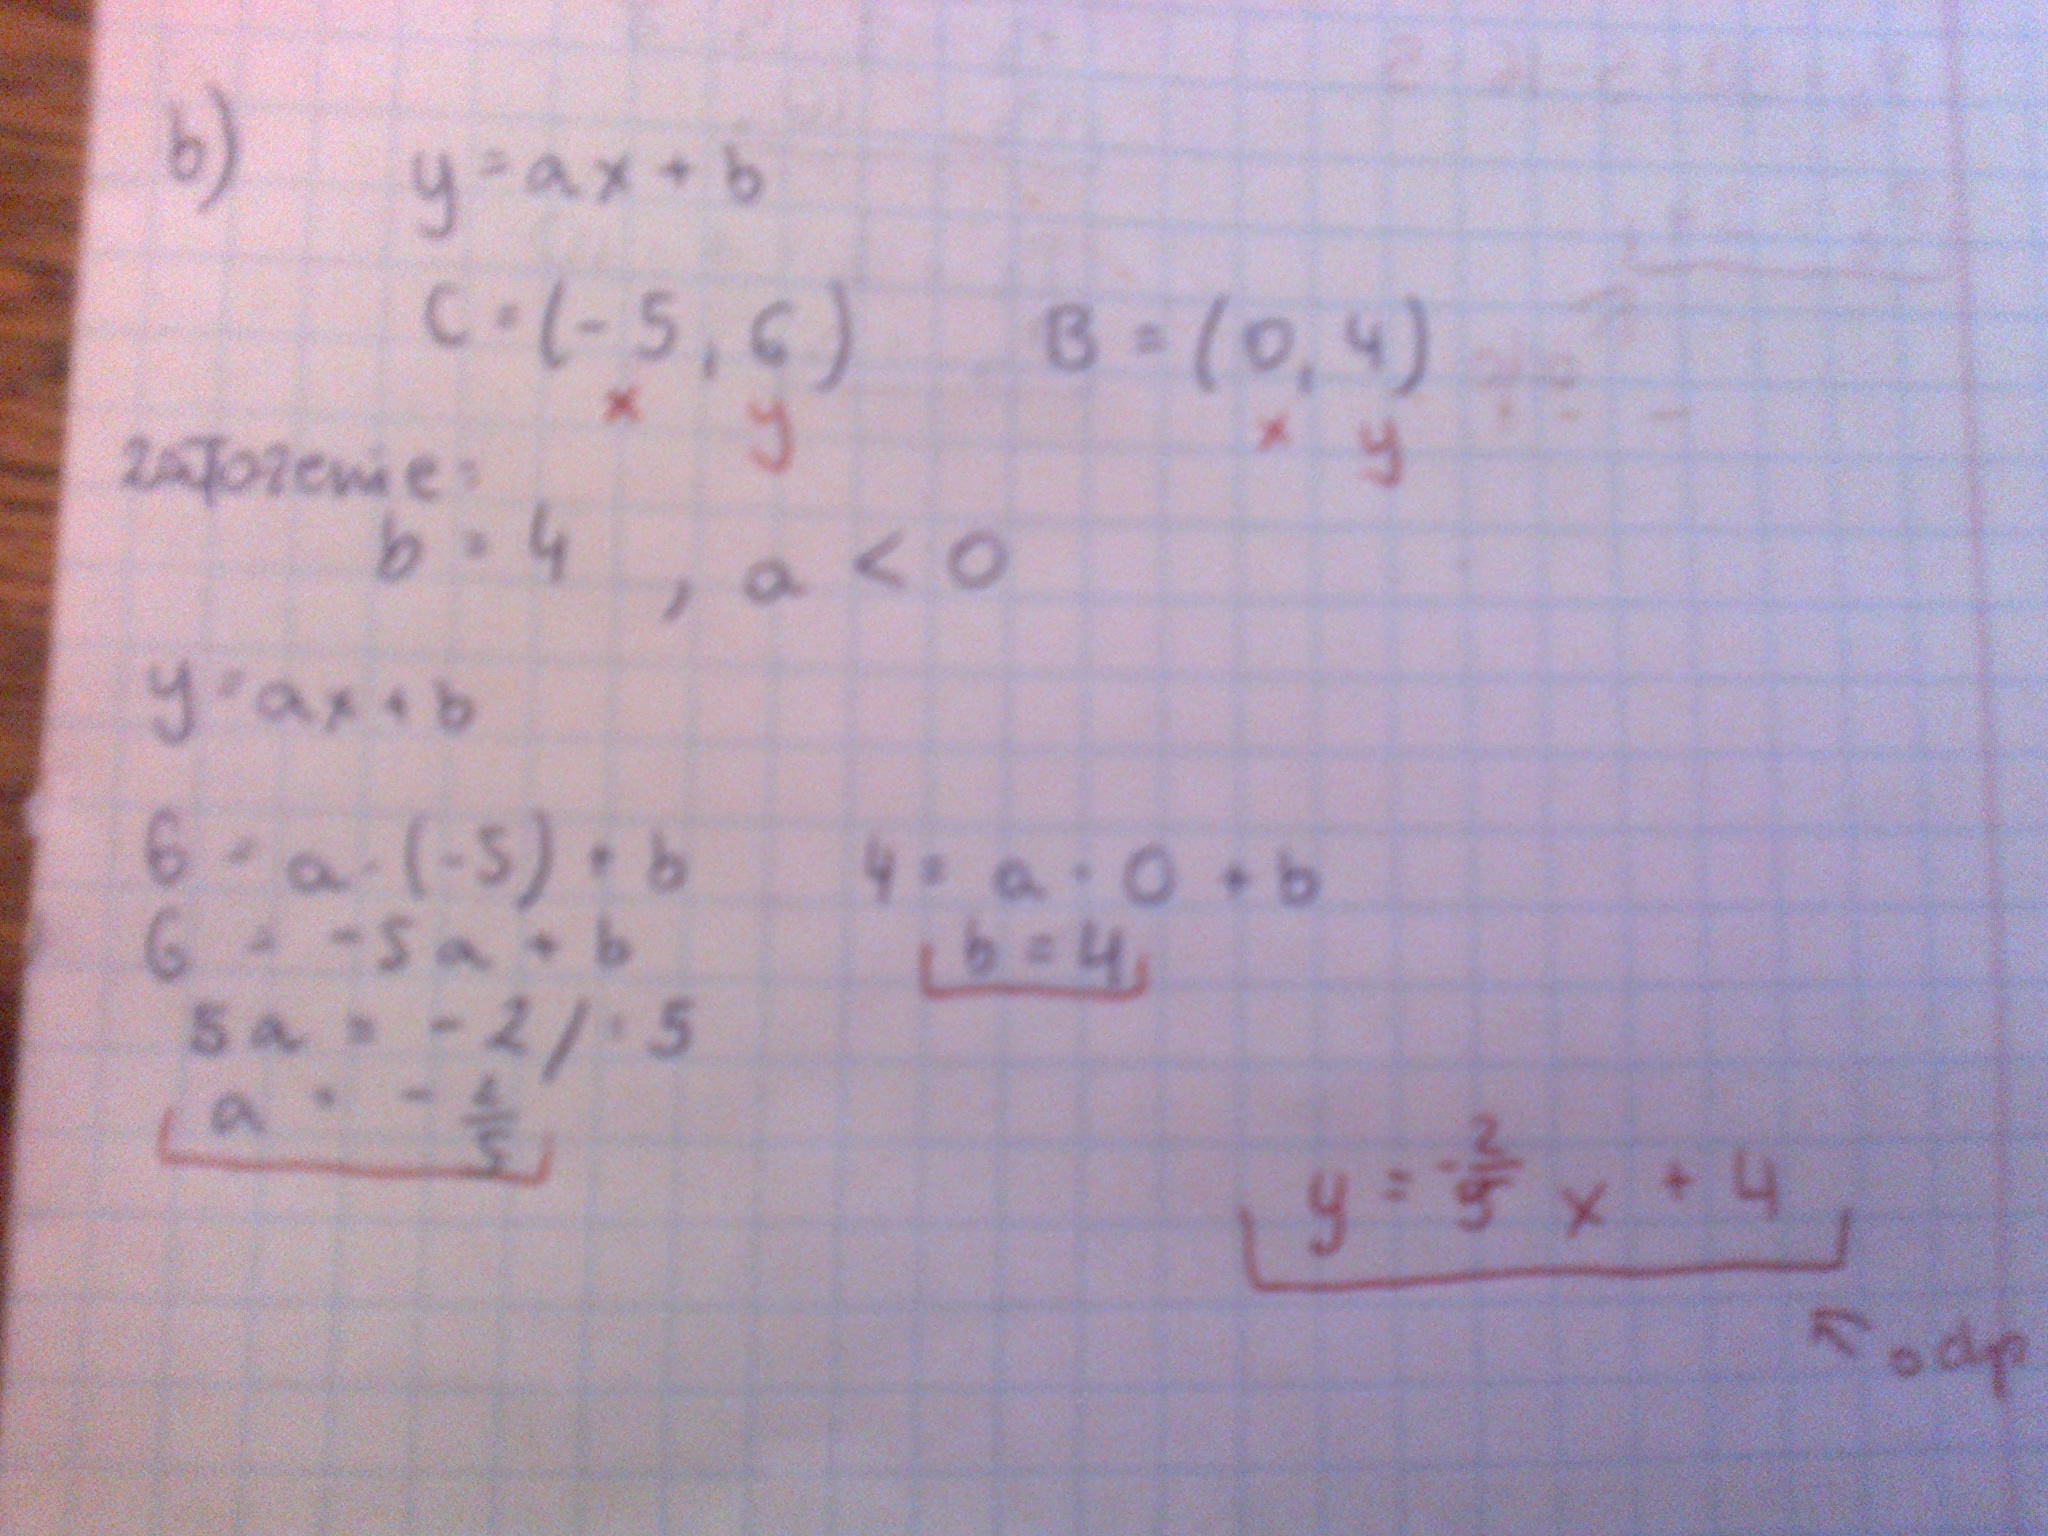 b) y = ax + b
C = (-5, 6) B = (0, 4)
x y x y
założenie:
b = 4 , a < 0
y = ax + b
6 = a · (-5) + b 4 = a · 0 + b
6 = -5a + b b = 4
5a = -2 / : 5
a = - 2/5
y = - 2/5 x + 4
odp